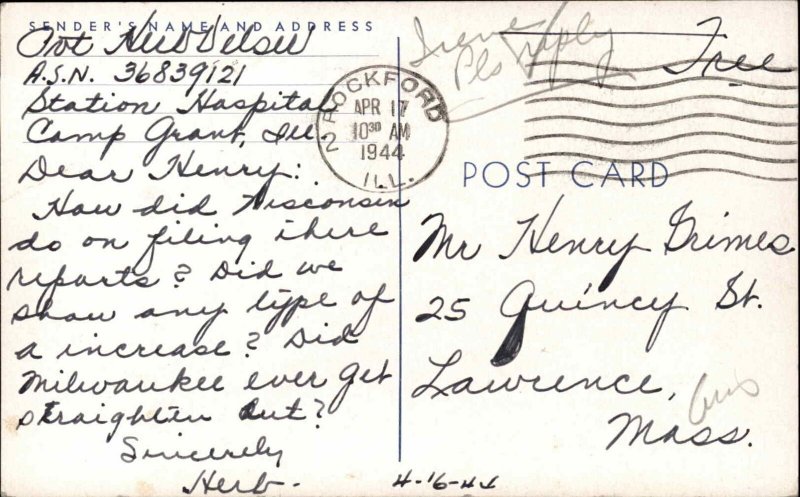 SENDER'S NAME AND ADDRESS
Pvt Herb
A.S.N. 36839121
Station Hospital
Camp Grant, Ill.
Dear Henry:
How did Wisconsin
do on filing there
reparts? Did we
show any type of
a increase? Did
Milwaukee ever get
straighten out?
Sincerely
Herb-
4-16-44
Irene
Pls reply
Free
ROCKFORD
2
APR 17
10 30 AM
1944
ILL.
POST CARD
Mr Henry Grimes
25 Quincy St.
Lawrence,
Mass.
Ans